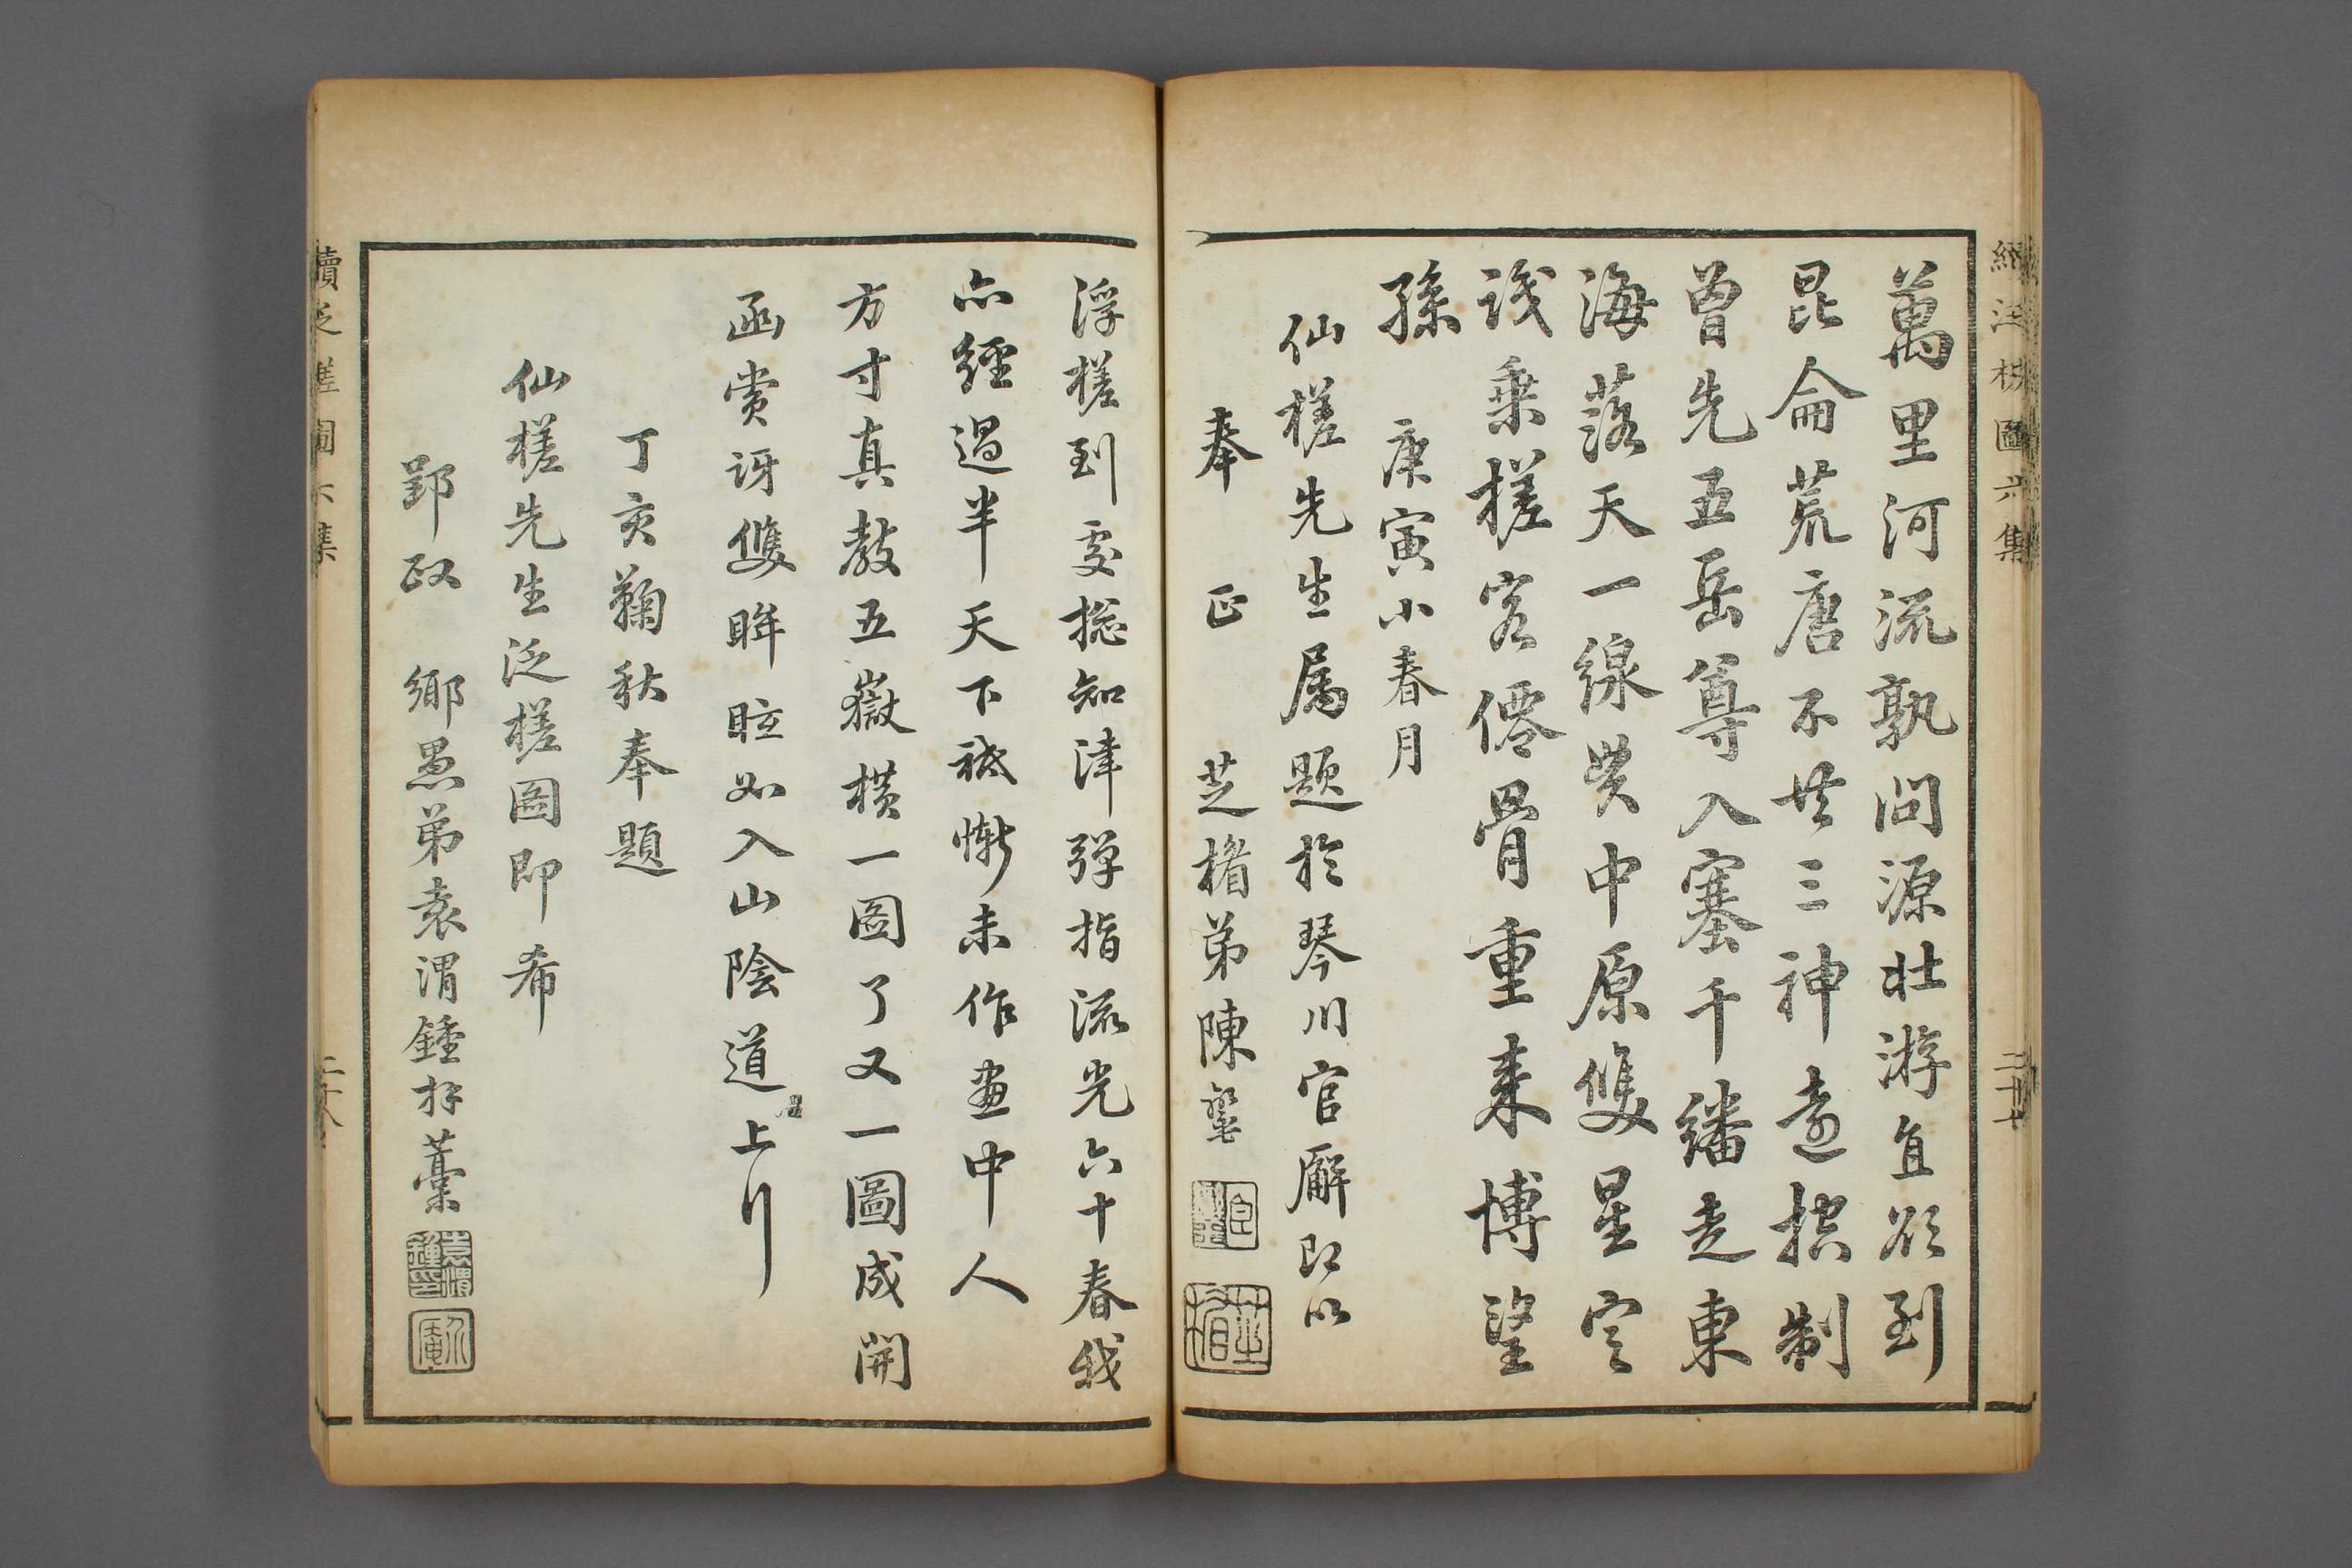 續泛槎圖六集
二十七
萬里河流孰問源壯游直欲到
昆侖荒唐不共三神遠控制
曾先五岳尊入塞千繙走東
海落天一線貫中原雙星定
識乘槎客僊骨重来博望
孫
庚寅小春月
仙槎先生属题於琴川官廨即以
奉 正 芝楣弟陳鑾
芝楣
浮槎到處捴知津彈指流光六十春我
亦經過半天下祗慚未作畫中人
方寸真教五嶽横一啚了又一圖成開
函赏訝雙眸眩如入山陰道上行
丁亥鞠秋奉題
仙槎先生泛槎圖即希
郢政 鄉愚弟袁渭鍾拜藁
袁渭鍾印
續泛槎圖六集
二十八